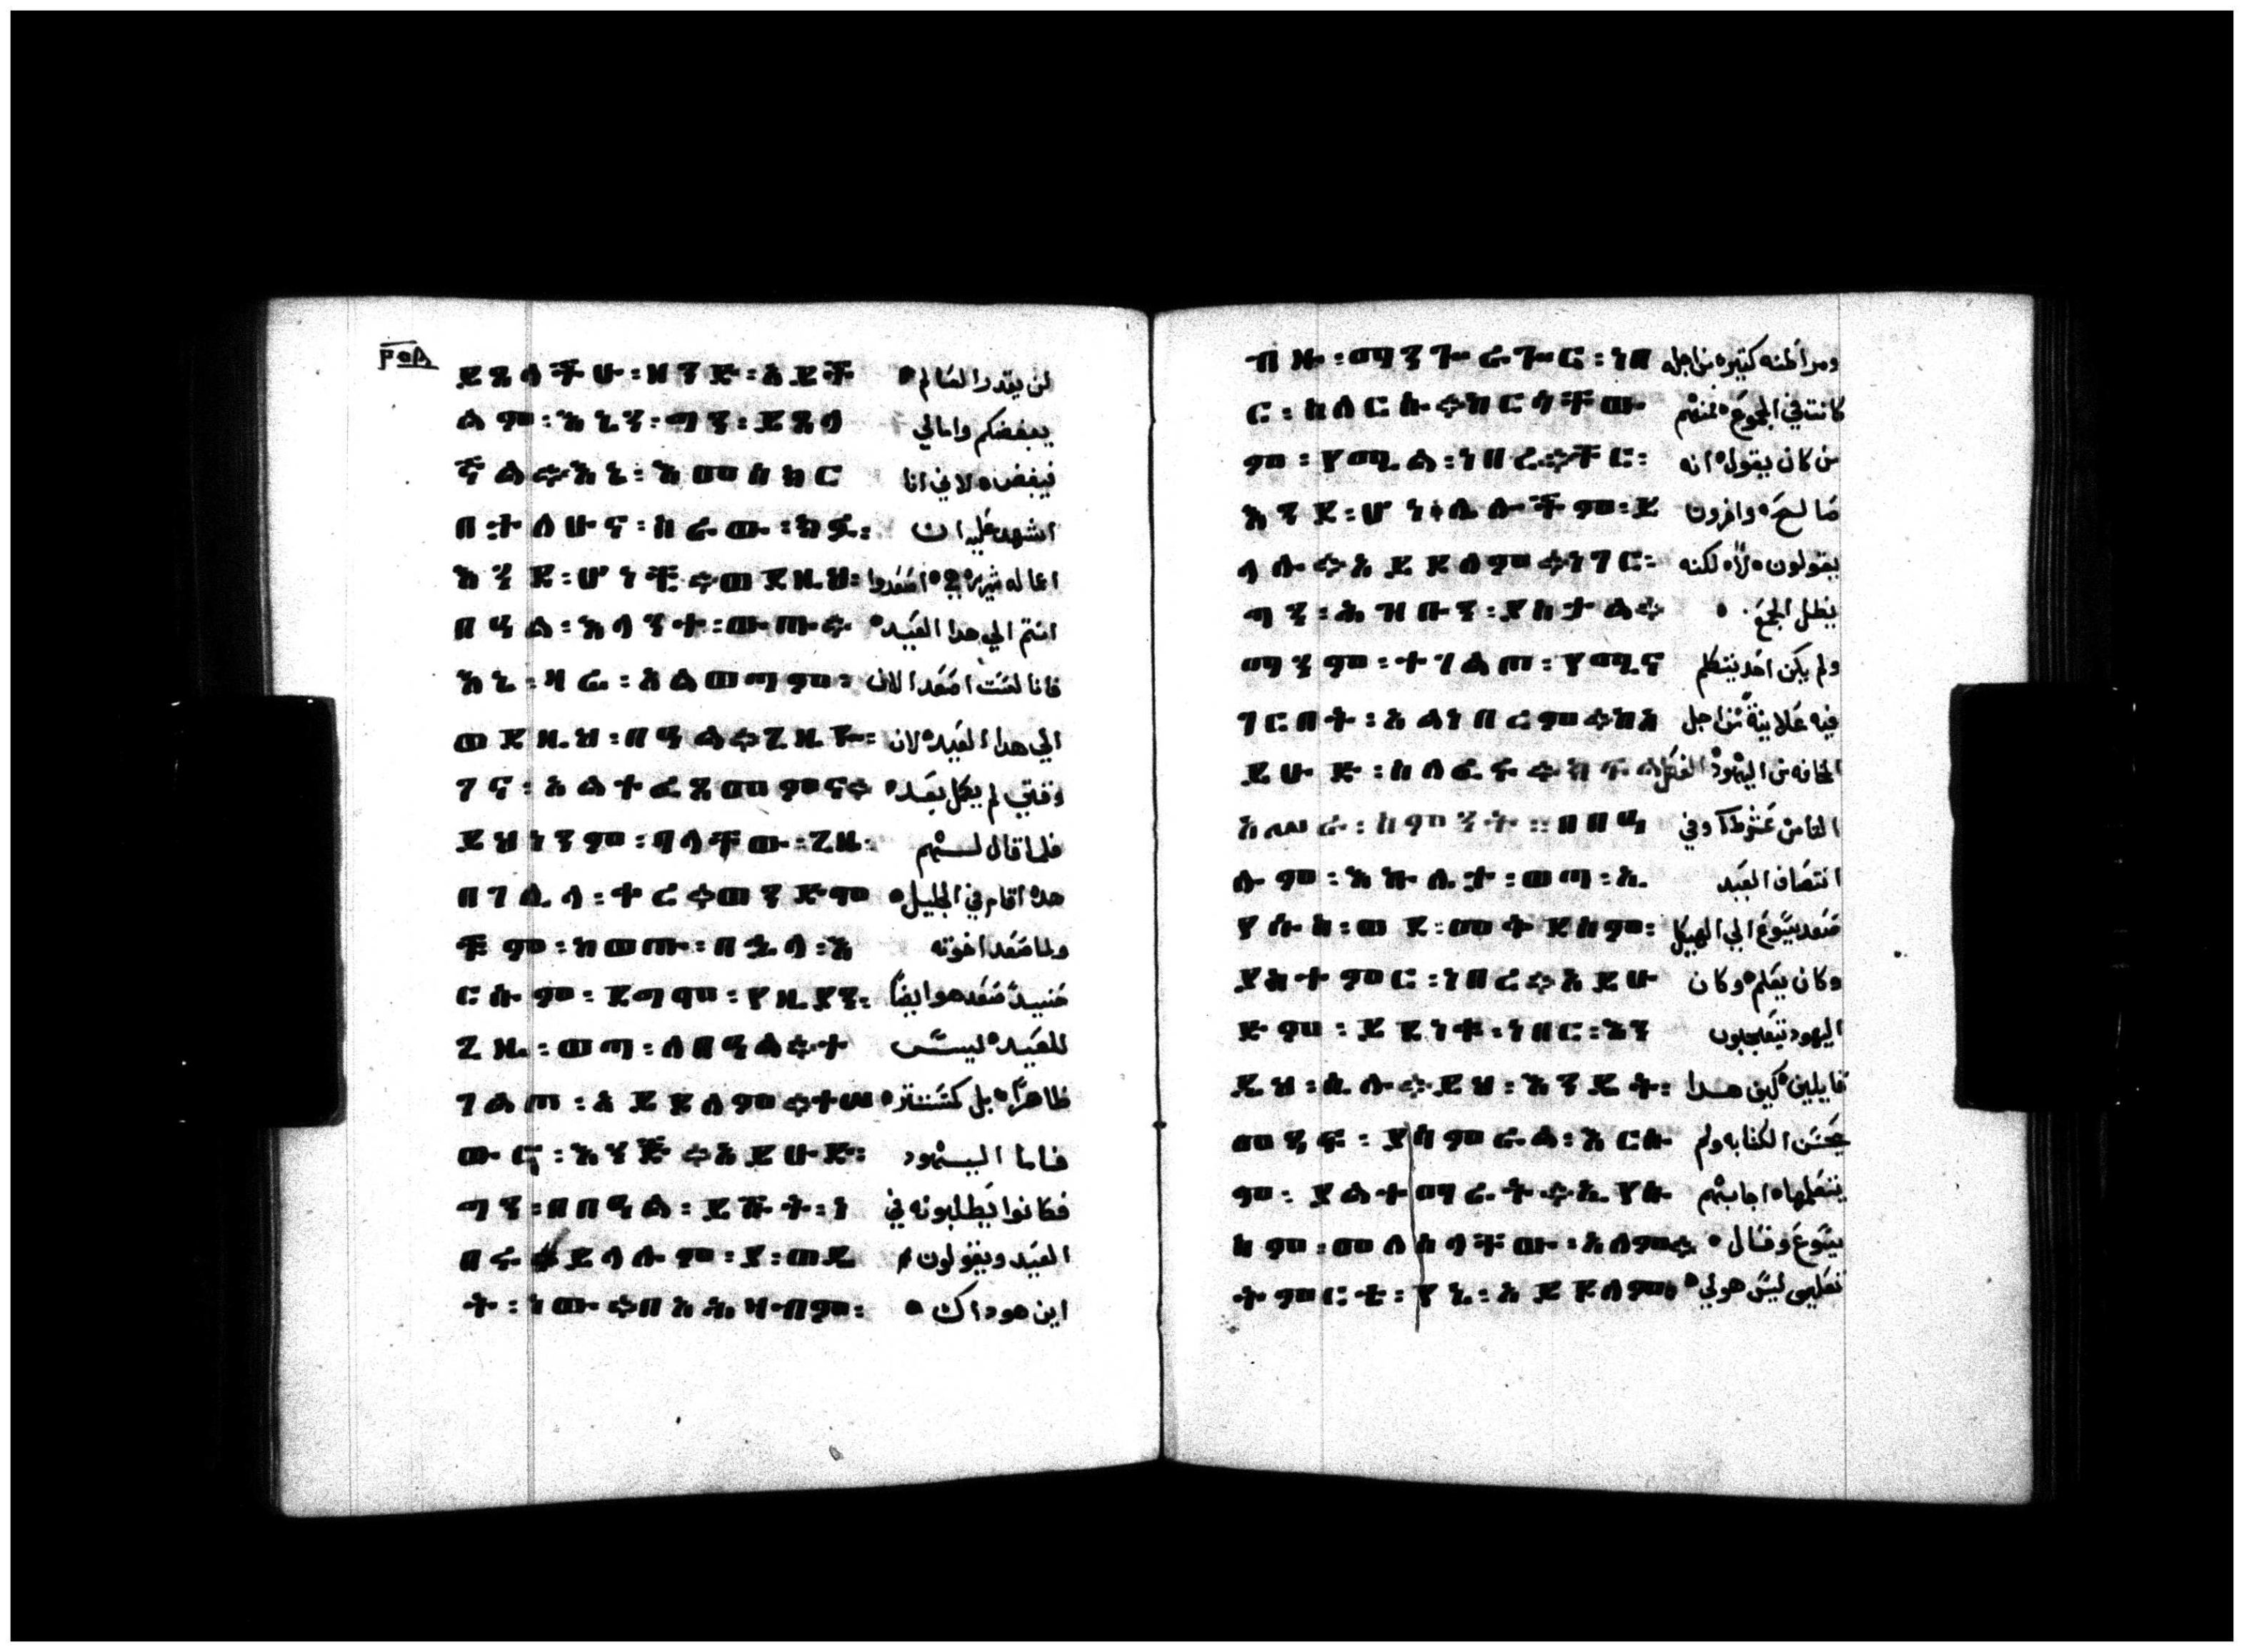 ፻፸፰
ይጸላችሁ፡ዘንድ፡አይች لن يقدر العالم
ልም፡እኔን፡ግን፡ይጸላ يبغضكم واما لي
ኛል፨እኔ፡እመሰክር فيبغض لاني انا
በት፡አለሁና፡ስራው፡ክፉ፡ اشهد عليه ان
እንደ፡ሆነች፨ወደዚህ፡ اعماله شريره اصعدوا
በዓል፡እላንት፡ውጡ፨ انتم الي هدا العيد
እኔ፡ዛሬ፡አልወጣም፡ فانا لست اصعد الان
ወደዚህ፡በዓል፨ጊዜዬ፡ الي هدا العيد لان
ገና፡አልተፈጸመምና፨ وقتي لم يكمل بعد
ይህነንም፡ብላቸው፡ጊዜ፡ فلما قال لهم
በገሊላ፡ቀረ፨ወንድሞ هدا اقام في الجليل
ቹም፡ከወጡ፡በኋላ፡እ ولما صعد اخوته
ርሱም፡ደግሞ፡የዚያን፡ حنيد صعد هو ايضا
ጊዜ፡ወጣ፡ለበዓል፨ተ للعيد ليس
ገልጦ፡አይደለም፨ተሠ ظاهرا بل كمستتر
ውሮ፡እንጂ፨አይሁድ፡ فاما اليهود
ግን፡በበዓል፡ይሹት፡ነ فكانوا يطلبونه في
በሩ፨ይላሉም፡ያ፡ወዴ العيد ويقولون
ት፡ነው፨በአሕዛብም፡ اين هو داك
ብዙ፡ማንጐራጐር፡ነበ ومراطنه كتيره من اجله
ር፡ስለርሱ፨ከርሳቸው كانت في الجموع فمنهم
ም፡የሚል፡ነበረ፨ቸር፡ من كان يقول انه
እንደ፡ሆነ፥ሌሎችም፡ይ صالح واخرون
ላሉ፨አይደለም፨ነገር፡ يقولون لا لكنه
ግን፡ሕዝቡን፡ያስታል፨ يضل الجمع
ማንም፡ተገልጦ፡የሚና ولم يكن احد يتكلم
ገርበት፡አልነበረም፨ከአ فيه علانية من اجل
ይሁድ፡ስለፈሩ፨ክፍል المخافه من اليهود الفصل
አሥራ፡ስምንት፡፡በበዓ التامن عشر وفي
ሉም፡እኩሌት፡ወጣ፡ኢ انتصاف العيد
የሱስ፡ወደ፡መቅደስም፡ صعد يسوع الي الهيكل
ያስተምር፡ነበረ፨አይሁ وكان يعلم وكان
ድም፡ይደነቁ፡ነበር፡እን اليهود يتعجبون
ዴህ፡ሲሉ፨ይህ፡እንዴት፡ قايلين كيف هدا
መጻፍ፡ያስምራል፡እርሱ يحسن الكتابه ولم
ም፡ያልተማረት፨ኢየሱ يتعلمها اجابهم
ስም፡መለሰላቸው፡አለም፨ يسوع وقال
ትምርቴ፡የኔ፡አይደለም፨ تعليمي ليس هو لي